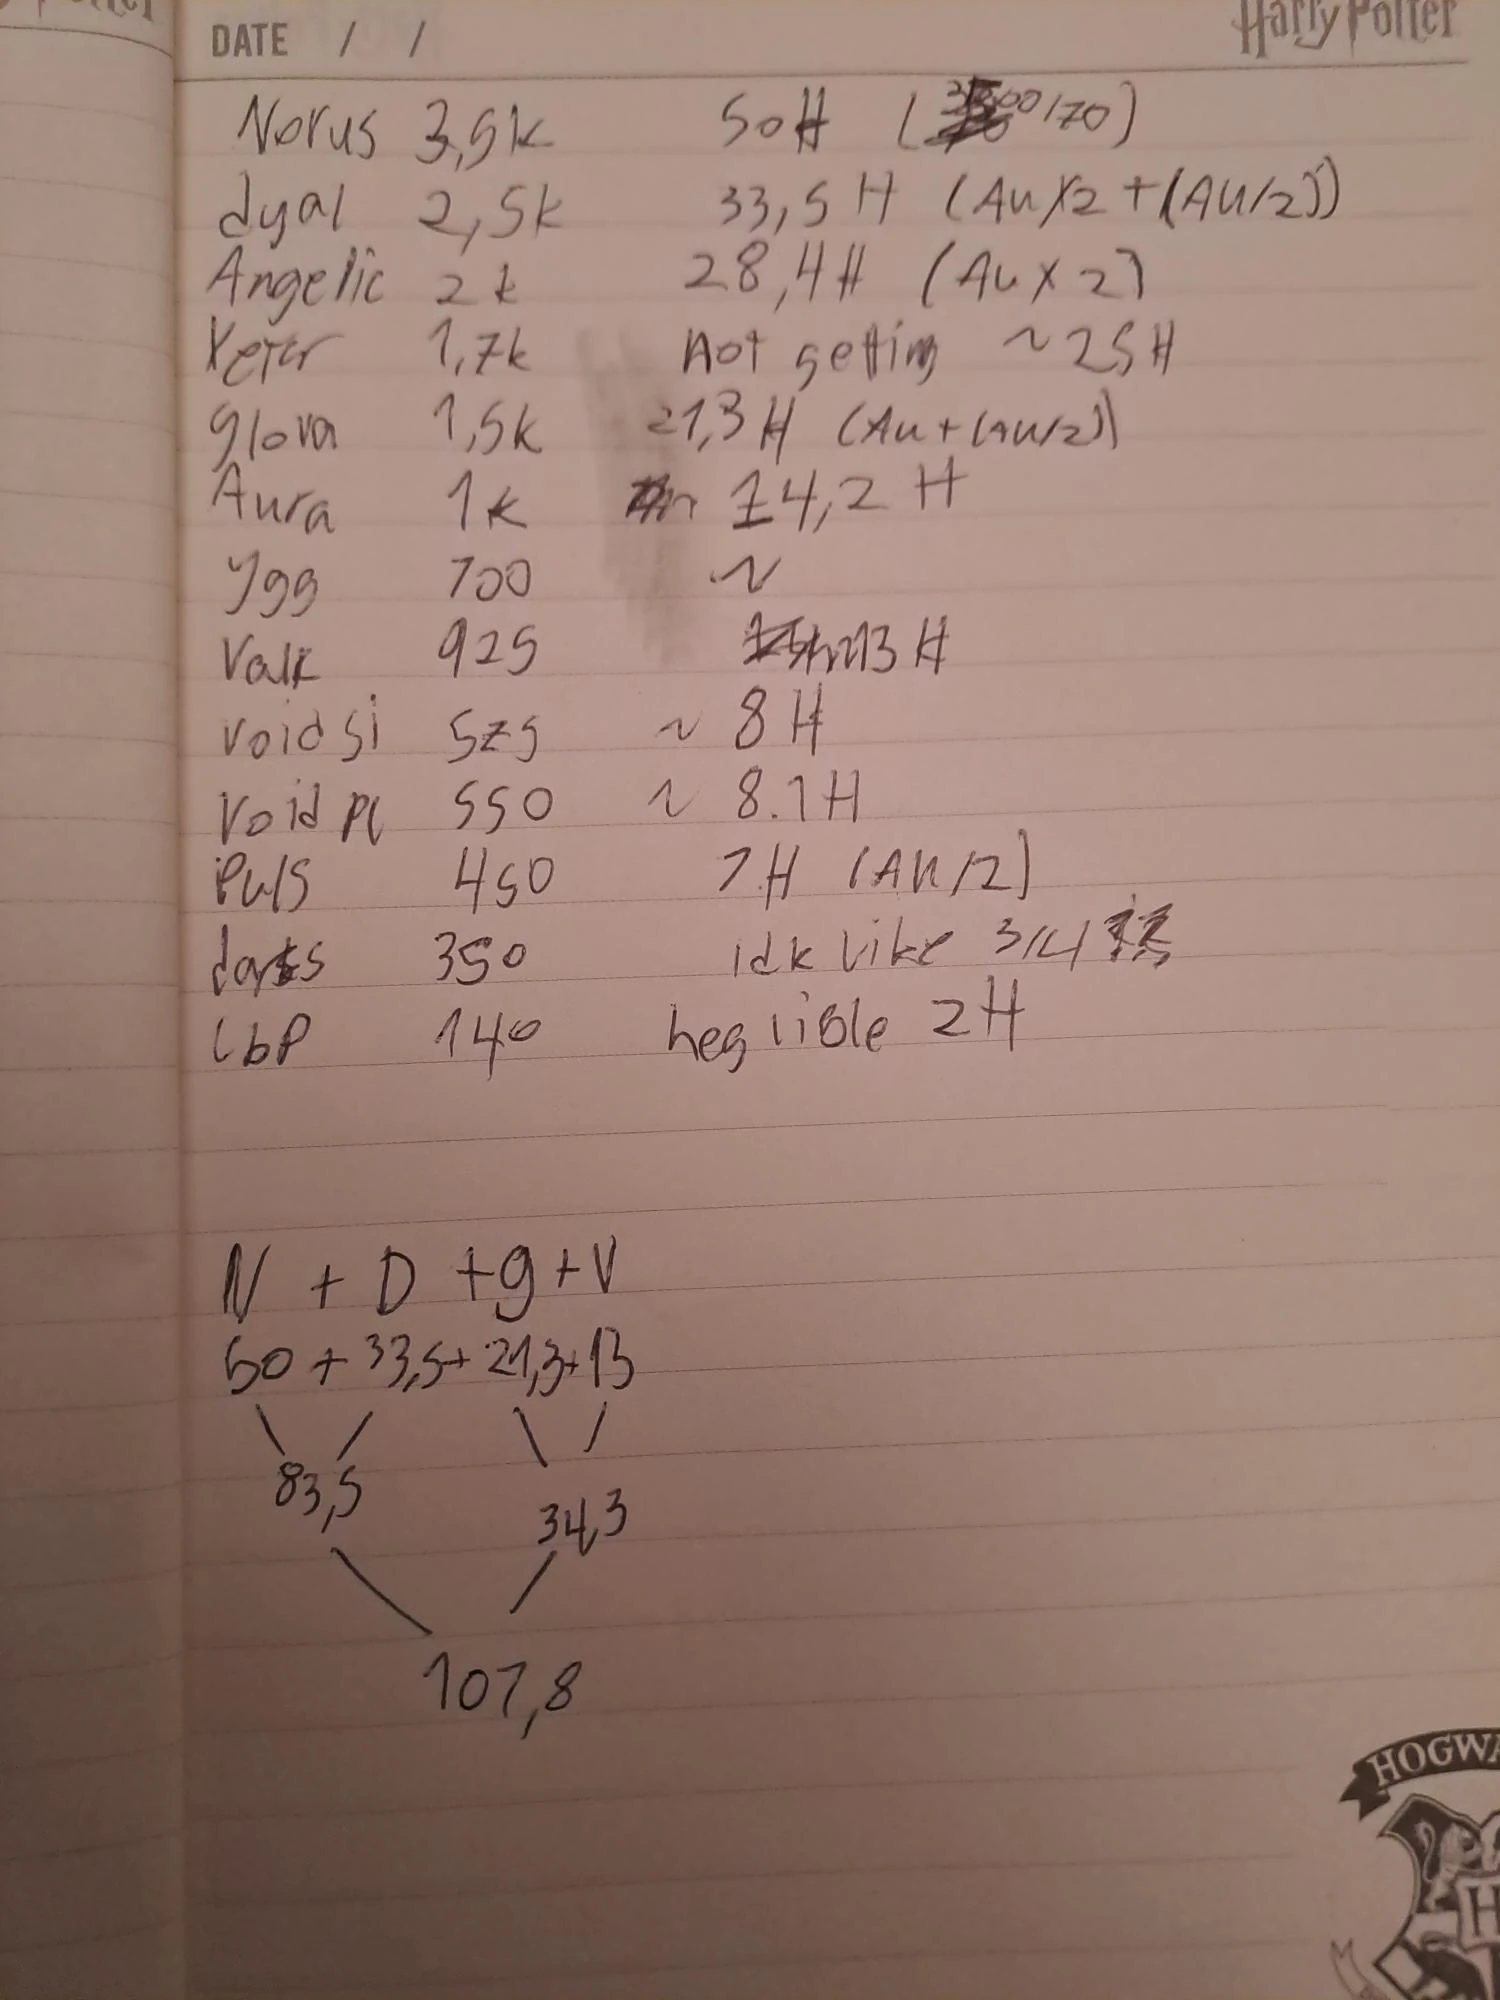 DATE / /
Harry Potter
Norus 3,5k 50H (3500/70)
dyal 2,5k 33,5H (Au x2 + (Au/2))
Angelic 2k 28,4H (Au x 2)
1,7k not getting ~25H
glova 1,5k 21,3H (Au + (Au/2))
Aura 1k 14,2 H
Ygg 700 ~
Valk 925 13 H
void si 525 ~ 8H
Void pl 550 ~ 8.1H
Puls 450 7H (Au/2)
350 idk like 3/4
LbP 140 neglible 2H
N + D + g + V
50 + 33,5 + 21,3 + 13
83,5
34,3
107,8
HOGWA
H